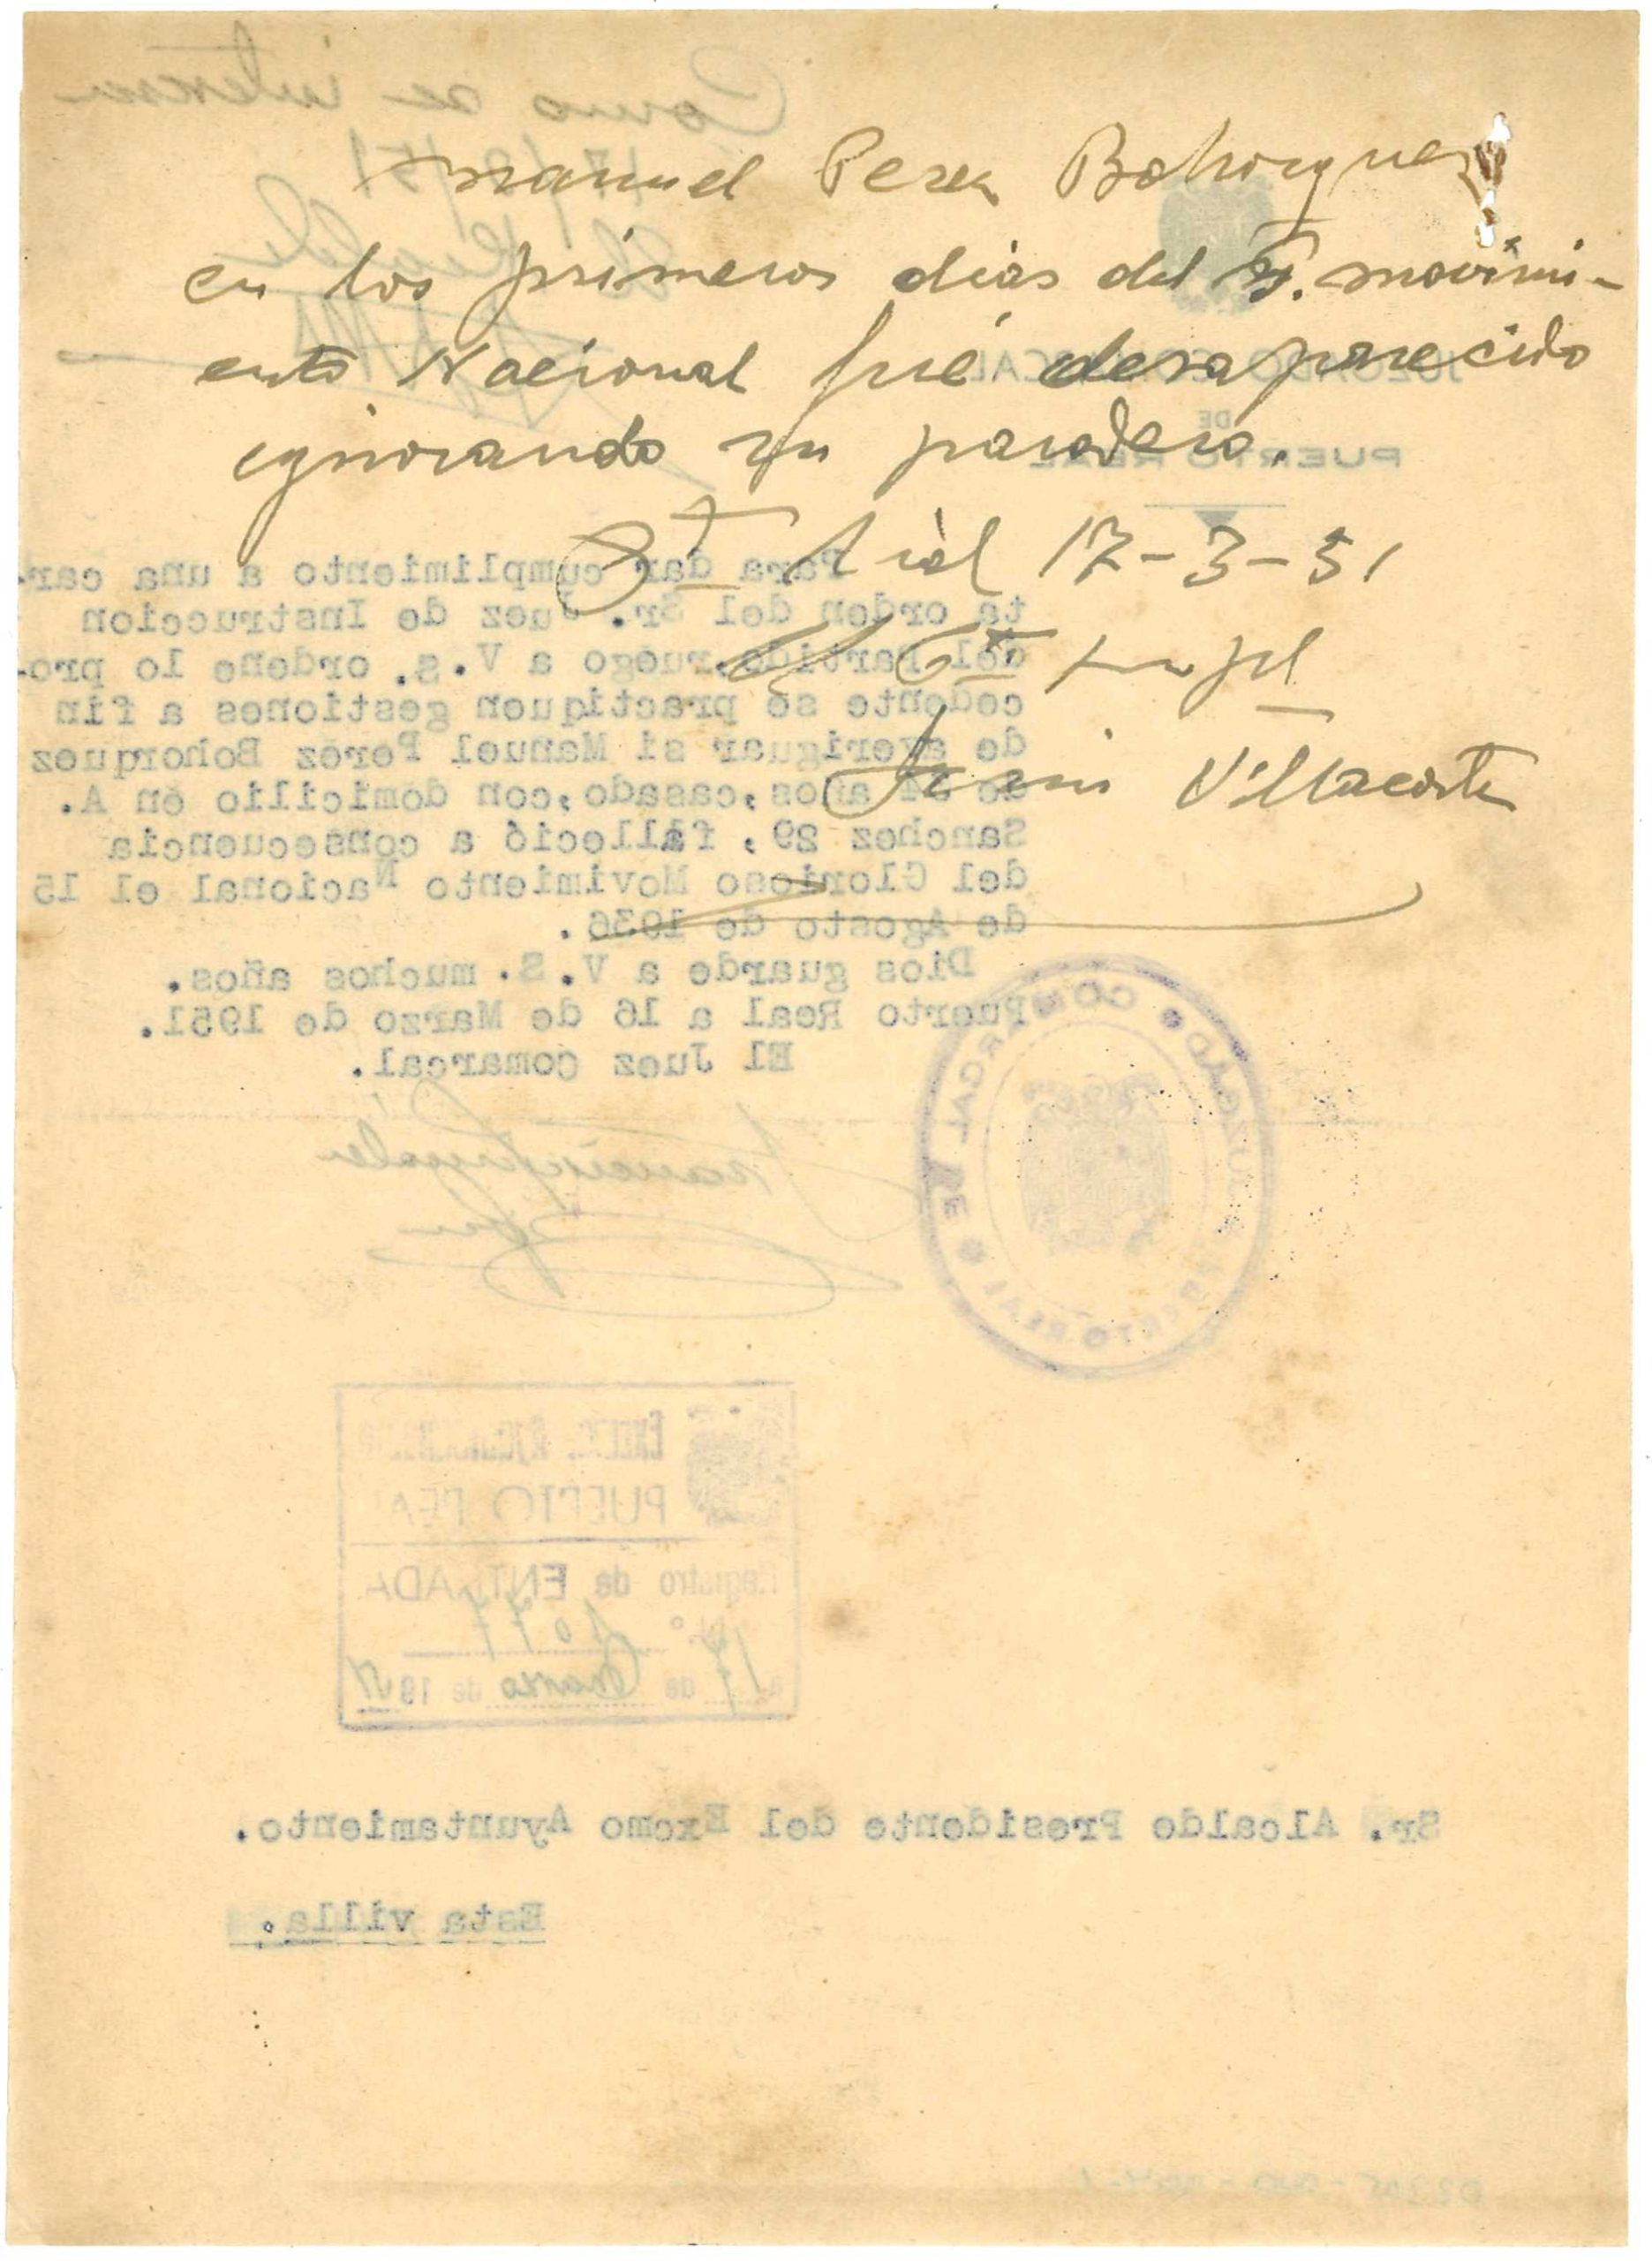 Manuel Perez Bohorquez
en los primeros dias del movimi-
ento Nacional fué desaparecido
ignorando su paradero.
Pto Real 17-3-51
El
Villacorta
Como se interesa
17/3/51
El Alcalde
JUZGADO COMARCAL
DE
PUERTO REAL
Para dar cumplimiento a una car-
ta orden del Sr. Juez de Instruccion
del Partido, ruego a V.s. ordene lo pro-
cedente se practiquen gestiones a fin
de averiguar si Manuel Perez Bohorquez
de años, casado, con domicilio en A.
Sanchez 29, falleció a consecuencia
del Glorioso Movimiento Nacional el 15
de Agosto de 1936.
Dios guarde a V.S. muchos años.
Puerto Real a 16 de Marzo de 1951.
El Juez comarcal.
JUZGADO COMARCAL DE PUERTO REAL
EXCMO. AYUNTAMIENTO
PUERTO REAL
Registro de ENTRADA
N.° 1077
a 17 de Marzo de 1951
Sr. Alcalde Presidente del Excmo Ayuntamiento.
Esta villa.